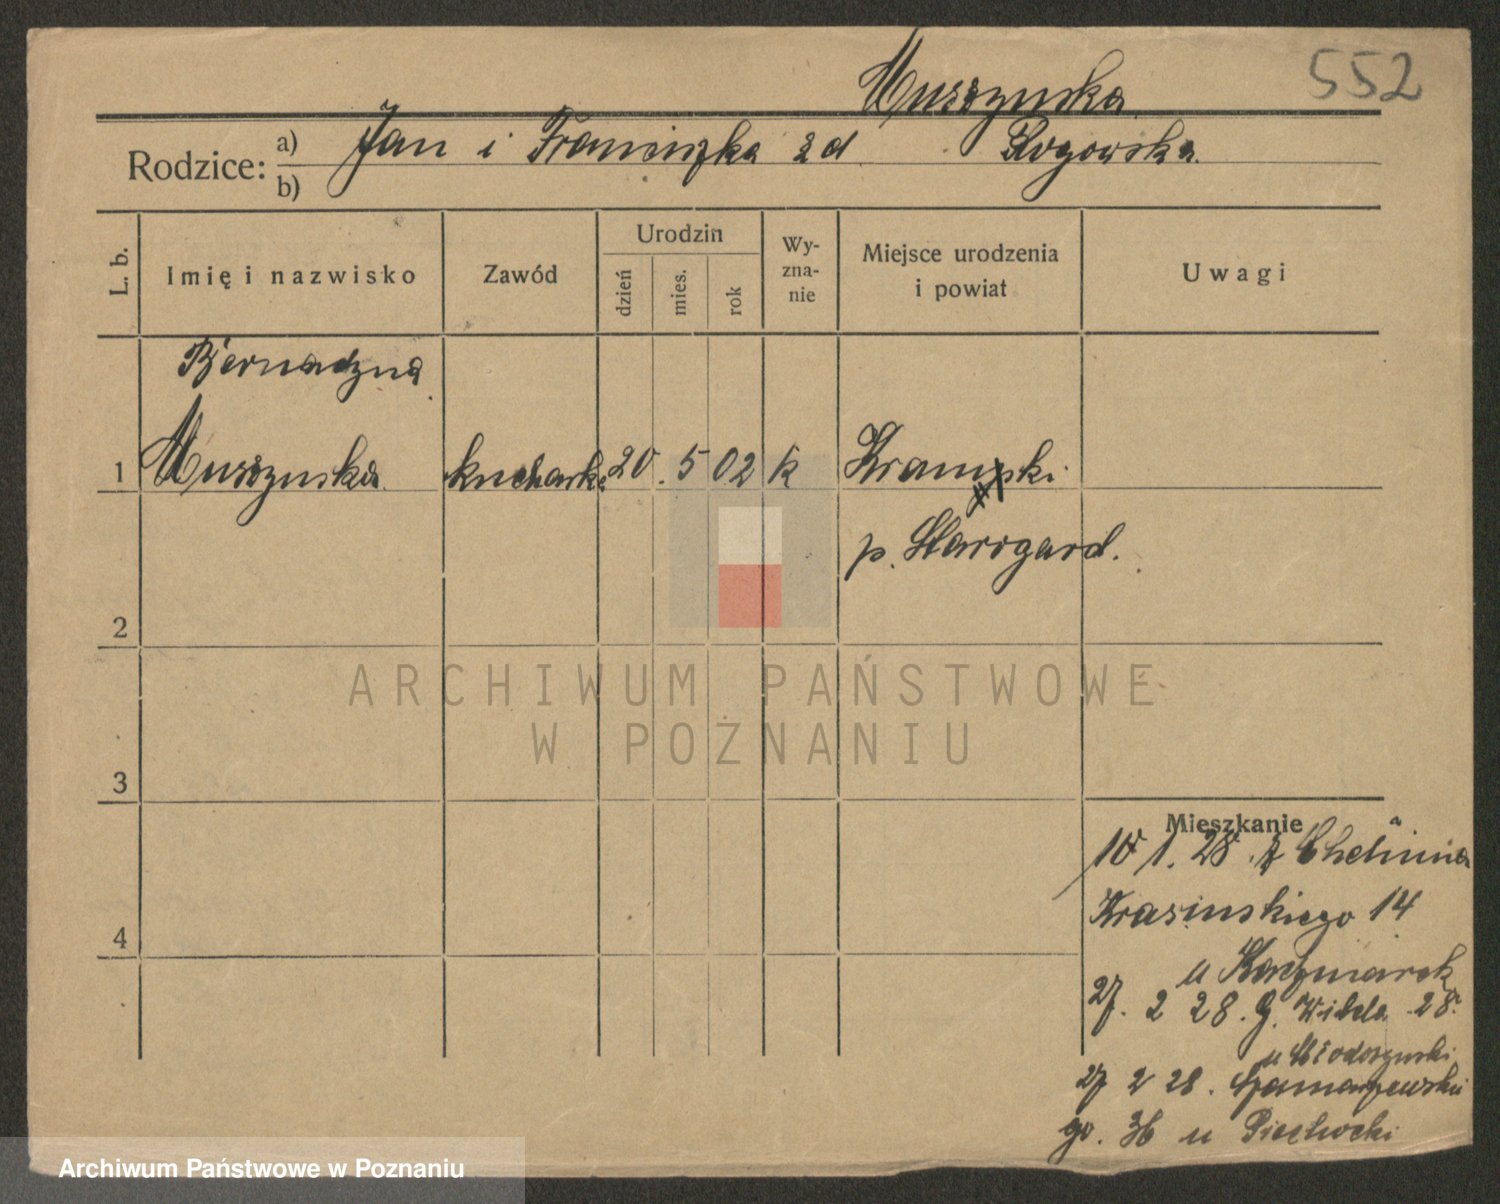 Muszynska
552
Rodzice: a) Jan i Franciszka zd. Rogowska.
b)
L. b. Imię i nazwisko Zawód Urodzin dzień mies. rok Wyznanie Miejsce urodzenia i powiat Uwagi
Bernadzna
1 Muszynska kucharka 20. 5 02 k
p. Starogard.
2
3
4
Mieszkanie
10 1. 28. z Chelmna
Krasinskiego 14
u Kaczmarek
27. 2 28. G. Wilda 28.
u
27 2 28. Szamarzewskie
go. 36 u Piechocki
ARCHIWUM PAŃSTWOWE
W POZNANIU
Archiwum Państwowe w Poznaniu